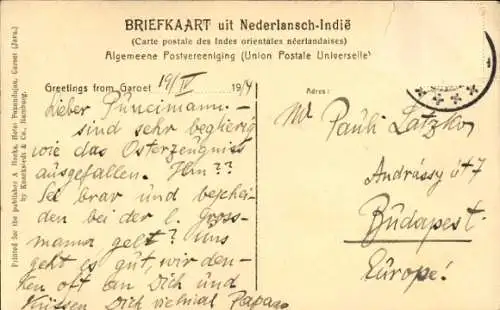 BRIEFKAART uit Nederlansch-Indië
(Carte postale des Indes orientales néerlandaises)
Algemeene Postvereeniging (Union Postale Universelle)
Greetings from Garoet 19/IV 1914
Lieber Püncimann. -
sind sehr begierig
wie das Osterzeugniss
ausgefallen. Hm??
Sei brav und beschei-
den bei der l. Gross-
mama, gelt? Uns
geht es gut, wir den-
ken oft an Dich und
Küssen Dich vielmal Papa
Adres:
Mr Pauli Latzko,
Andrássy út 7
Budapest.
Europe!
Printed for the publisher A. Hacks, Hotel Papandajan, Garoet (Java.)
by Knackstedt & Co., Hamburg.